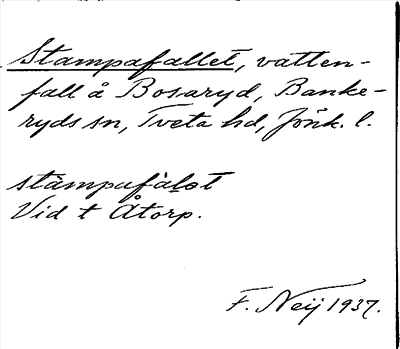 Stampafallet, vatten-
fall å Bosaryd, Banke-
ryds sn, Tveta hd, Jönk. l.
stàmpafàlet
Vid t Åtorp.
F. Neij 1937.